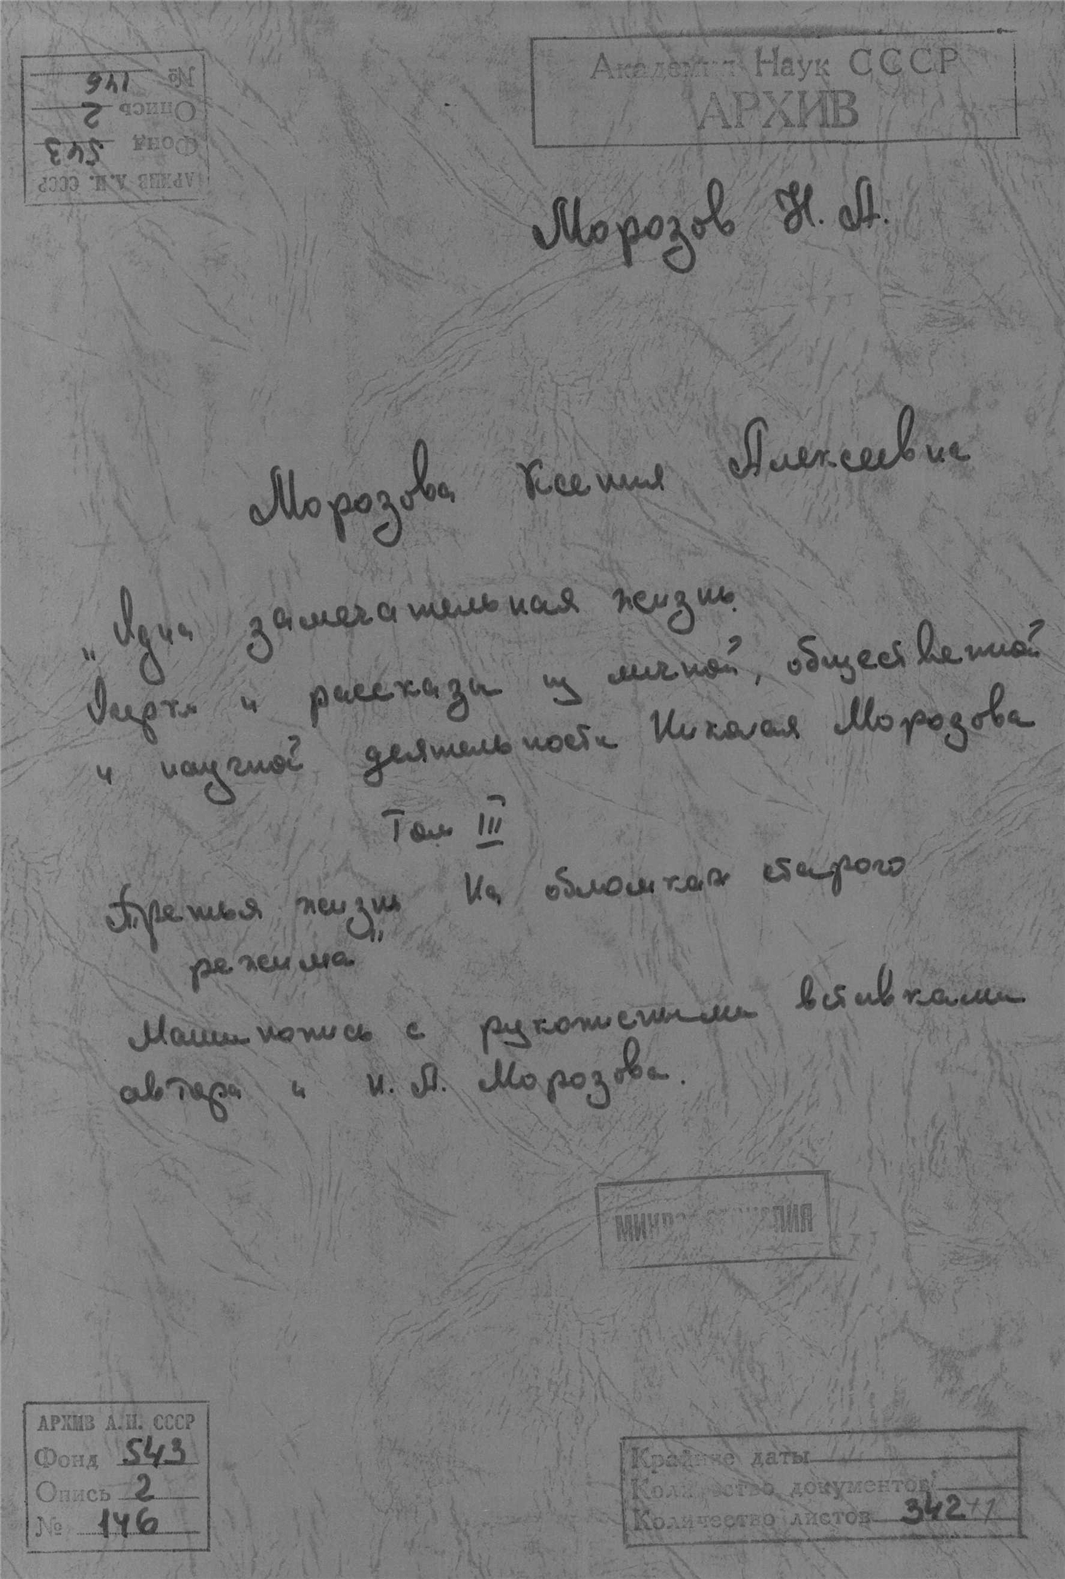 Академия Наук СССР
АРХИВ
№ 146
Опись 2
Фонд 543
АРХИВ А.Н. СССР
Морозов Н. А.
Морозова Ксения Алексеевна
„Одна замечательная жизнь.
Очерки и рассказы из личной, общественной
и научной деятельности Николая Морозова
Том III
Третья жизнь На обломках старого
режима"
Машинопись с рукописными вставками
автора и Н. А. Морозова.
АРХИВ А.Н. СССР
Фонд 543
Опись 2
№ 146
Крайние даты
Количество документов
Количество листов 342+1